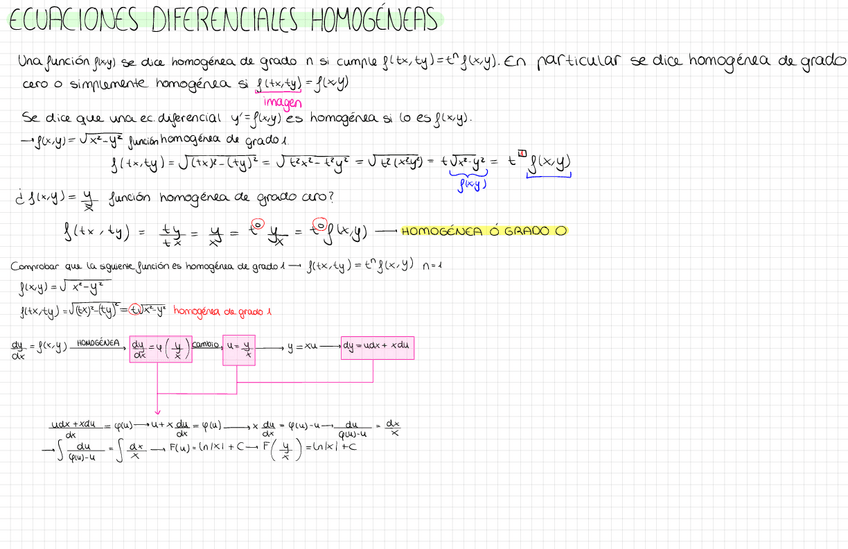 ECUACIONES DIFERENCIALES HOMOGÉNEAS
Una función f(x,y) se dice homogénea de grado n si cumple f(tx,ty)=tⁿf(x,y). En particular se dice homogénea de grado
cero o simplemente homogénea si f(tx,ty)=f(x,y)
imagen
Se dice que una ec. diferencial y'=f(x,y) es homogénea si lo es f(x,y).
→f(x,y)=√x²-y² función homogénea de grado 1.
f(tx,ty)=√(tx)²-(ty)² = √t²x²-t²y² = √t²(x²y²) = t√x²-y² = t¹ f(x,y)
f(x,y)
¿f(x,y)=y/x función homogénea de grado cero?
f(tx,ty) = ty/tx = y/x = t⁰ y/x = t⁰f(x,y) → HOMOGÉNEA Ó GRADO 0
Comprobar que la siguiente función es homogénea de grado 1 → f(tx,ty)=tⁿf(x,y) n=1
f(x,y)=√x²-y²
f(tx,ty)=√(tx)²-(ty)² = t√x²-y² homogénea de grado 1
dy/dx = f(x,y) HOMOGÉNEA → dy/dx = φ(y/x) cambio u=y/x → y=xu → dy=udx+xdu
udx+xdu/dx = φ(u) → u+x du/dx = φ(u) → x du/dx = φ(u)-u → du/φ(u)-u = dx/x
→ ∫ du/φ(u)-u = ∫ dx/x → F(u)=ln|x|+C → F(y/x)=ln|x|+C